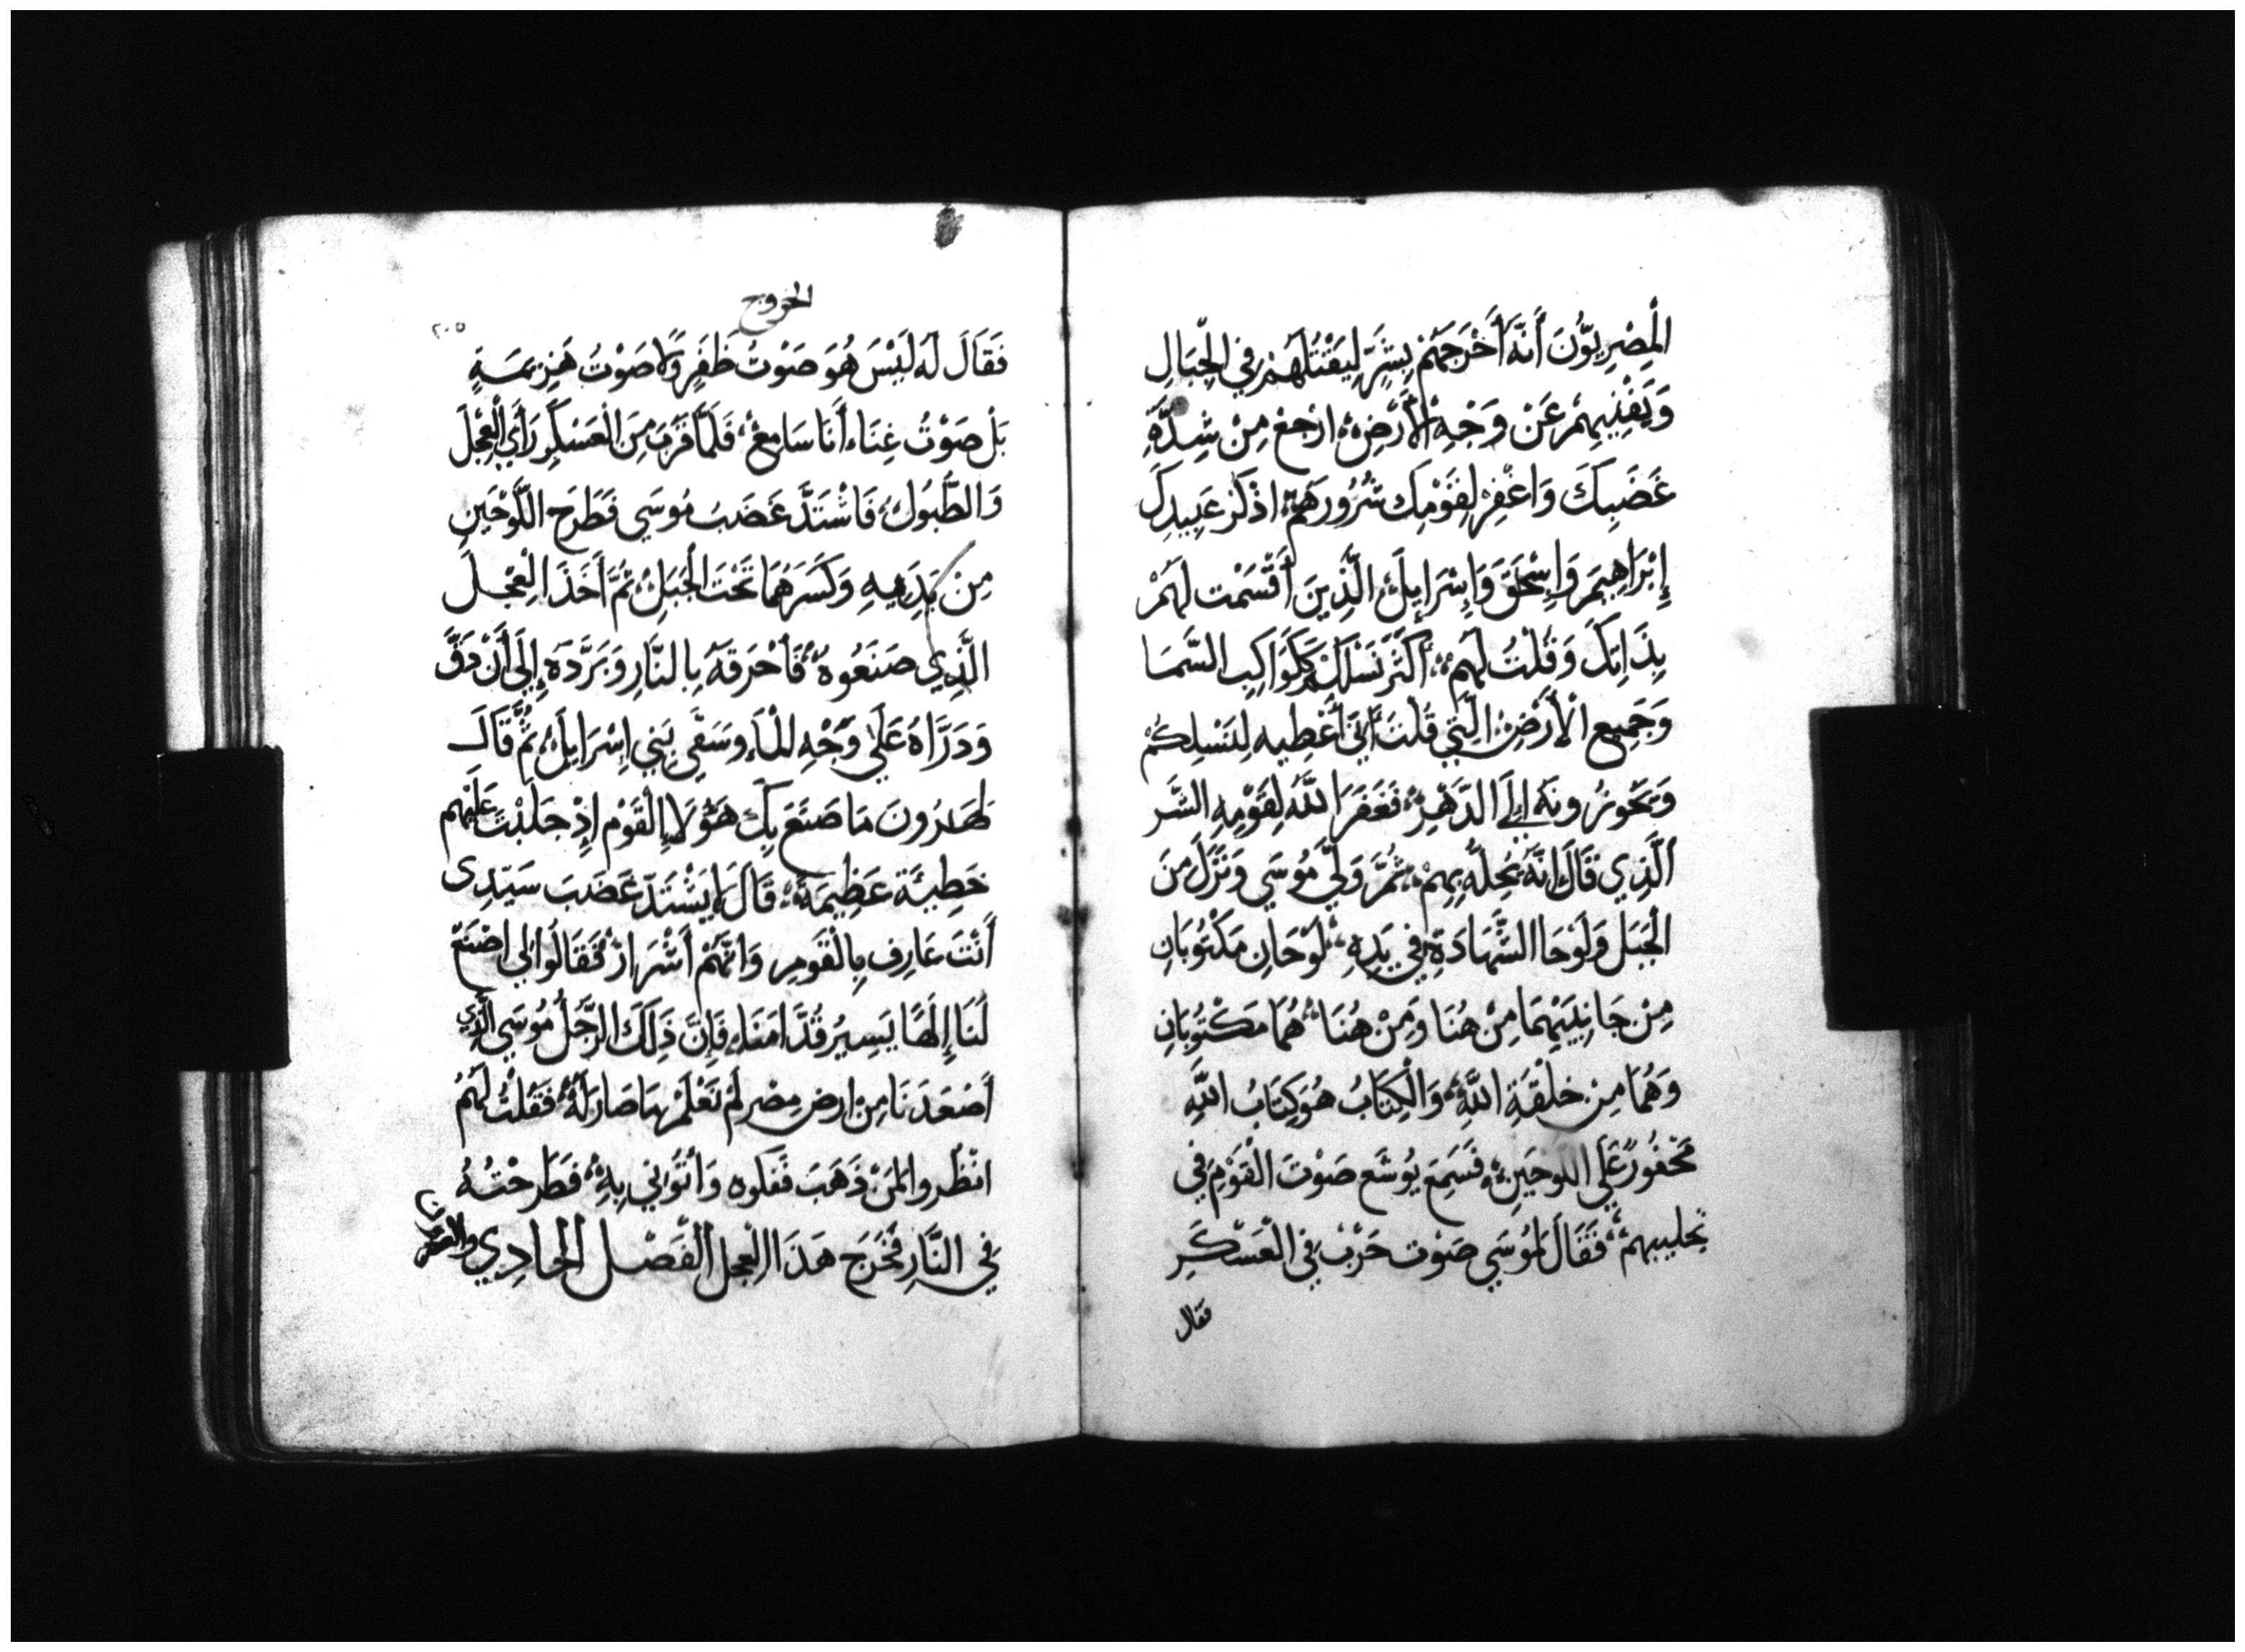 الْمِصْرِيُّونَ أَنَّهُ أَخْرَجَهُمْ بِشَرٍّ لِيَقْتُلَهُمْ فِي الْجِبَالِ
وَيَفْنِيهِمْ عَنْ وَجْهِ الْأَرْضِ، ارْجِعْ مِنْ شِدَّةِ
غَضَبِكَ وَاغْفِرْ لِقَوْمِكَ شُرُورَهُمْ، اذْكُرْ عَبِيدِكَ
إِبْرَاهِيمَ وَإِسْحَقَ وَإِسْرَايِلَ، الَّذِينَ أَقْسَمْتَ لَهُمْ
بِذَاتِكَ وَقُلْتُ لَهُمْ، أُكَثِّرُ نَسْلَكُمْ كَكَوَاكِبِ السَّمَا
وَجَمِيعِ الْأَرْضِ، الَّتِي قُلْتَ أَنِّي أُعْطِيهِ لِنَسْلِكُمْ
وَيَحُوزُونَهُ إِلَى الدَّهْرِ، فَغَفَرَ اللَّهُ لِقَوْمِهِ الشَّر
الَّذِي قَالَ إِنَّهُ يُحِلُّهُ بِهِمْ، ثُمَّ وَلَّى مُوسَي وَنَزَلَ مِنَ
الْجَبَل وَلَوْحَا الشَّهَادَةِ فِي يَدِهِ، لَوْحَانِ مَكْتُوبَانِ
مِنْ جَانِبَيْهِمَا مِنْ هُنَا وَمِنْ هُنَا، هُمَا مَكْتُوبَانِ
وَهُمَا مِنْ خِلْقَةِ اللَّهِ، وَالْكِتَابُ هُوَ كِتَابُ اللَّهِ
مَحْفُورٌ عَلَي اللَّوْحَيْنِ، فَسَمِعَ يُوشَع صَوْتَ الْقَوْمِ فِي
تجليبهم، فَقَالَ لِمُوسَي صَوْت حَرْبٍ فِي الْعَسْكَرِ
فقال
الخروج
٢٠٥
فَقَالَ لَهُ لَيْسَ هُوَ صَوْتُ ظَفَرٍ وَلَا صَوْتُ هَزِيمَةٍ
بَلْ صَوْتُ غِنَاء أَنَا سَامِعٌ، فَلَمَّا قَرُبَ مِنَ الْعَسْكَرِ رَأَي الْعِجْلَ
وَالطُّبُولُ، فَاشْتَدَّ غَضَبُ مُوسَي فَطَرَحَ اللَّوْحَيْنِ
مِنْ يَدَيْهِ وَكَسَرَهُمَا تَحْتَ الْجَبَلْ، ثُمَّ أَخَذَ الْعِجْلَ
الَّذِي صَنَعُوهُ، فَأَحْرَقَهُ بِالنَّارِ وَبَرَّدَهُ إِلَى أَنْ دَقَّ
وَدَرَّاهُ عَلَى وَجْهِ الْمَاءِ وَسَقَى بَنِي إِسْرَايِلَ، ثُمَّ قَالَ
لِهَارُونَ مَا صَنَعَ بِكَ هَؤُلَاءِ الْقَوْم إِذْ جَلَبْتَ عَلَيْهِم
خَطِيَّة عَظِيمَة، قَالَ لَا يَشْتَدّ غَضَبَ سَيِّدِي
أَنْتَ عَارِف بِالْقَوْمِ وَانَّهُمْ أَشْرَار، فَقَالُوا لِي اصْنَعْ
لَنَا إِلَهًا يَسِيرُ قُدَّامَنَا، فَإِنَّ ذَلِكَ الرَّجُل مُوسَي الَّذِي
أَصْعَدَنَا مِنْ ارض مِصْر لَمْ نَعْلَمْ مَا صَارَ لَهُ، فَقُلْتُ لَهُمْ
انْظُروا لِمَنْ ذَهَبَ فَفكوه وَأْتُونِي بِهِ، فَطَرَحْتُهُ
فِي النَّارِ فَخَرَجَ هَذَا الْعِجل الْفَصْل الْحَادِي والعشرون